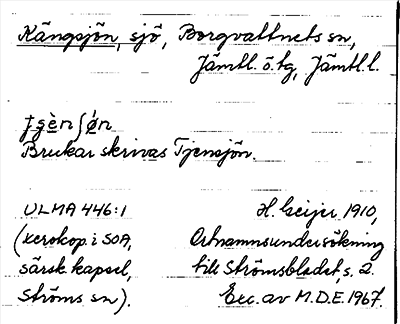 Kängsjön, sjö, Borgvattnets sn,
Jämtl. ö. tg, Jämtl. l.
Brukar skrivas Tjensjön.
ULMA 446:1 H. Geijer 1910,
(xerokop. i SOA, Ortnamnsundersökning
särsk. kapsel, till Strömsbladet, s. 2.
Ströms sn). Exc. av M.D.E. 1967.